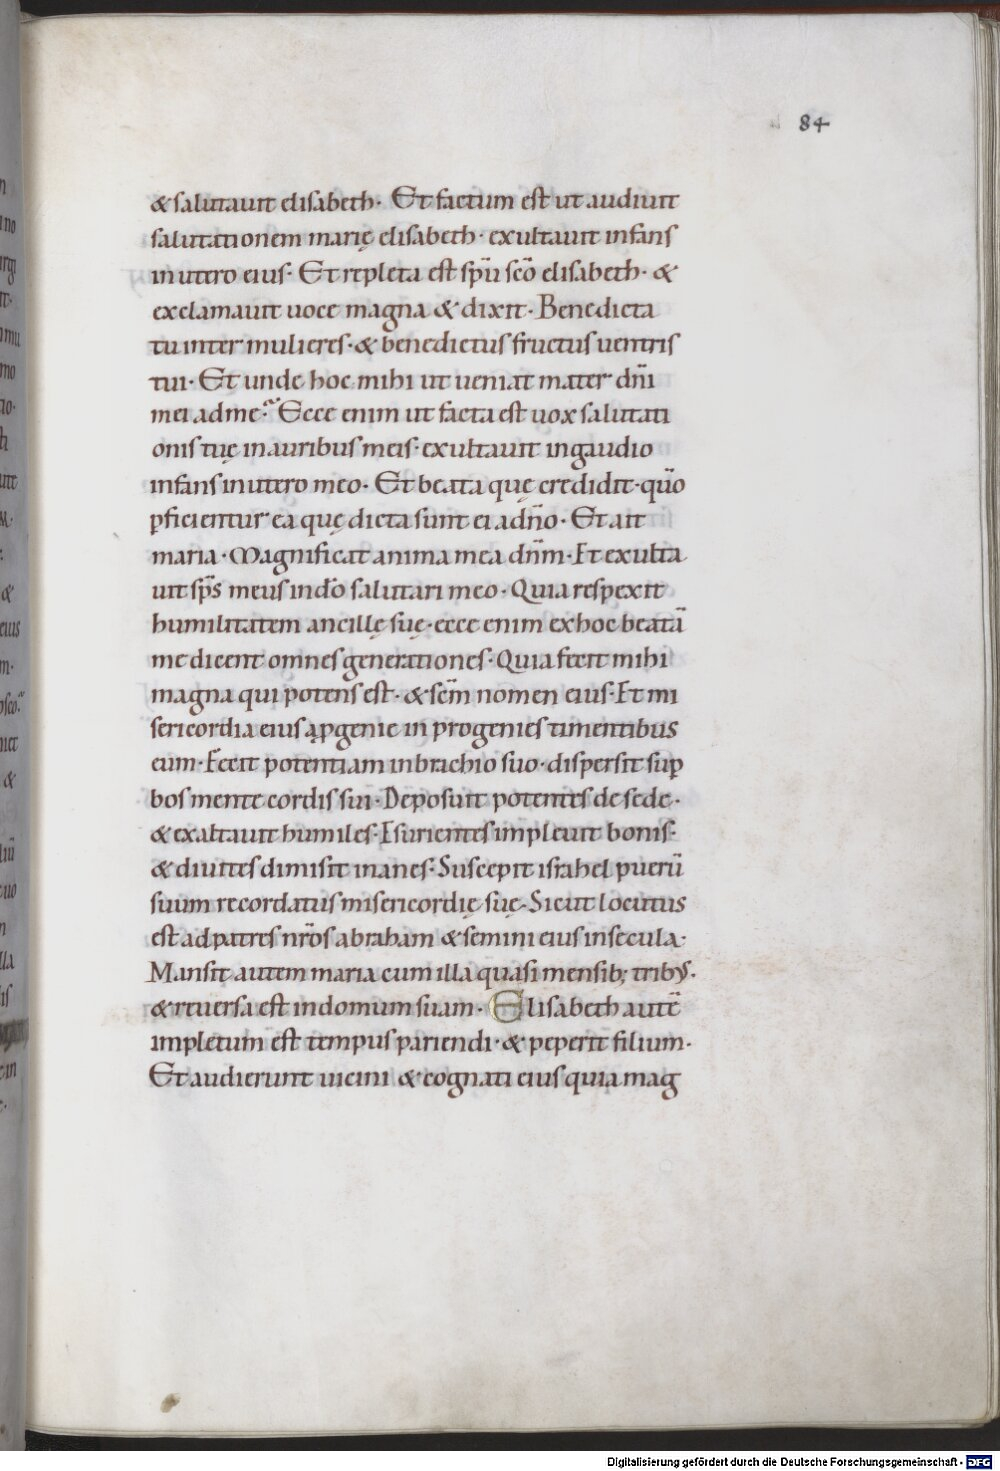 84
& salutauit elisabeth · Et factum est ut audiuit
salutationem marię elisabeth · exultauit infans
in utero eius · Et repleta est spū scō elisabeth · &
exclamauit uoce magna & dixit · Benedicta
tu inter mulieres · & benedictus fructus uentris
tui · Et unde hoc mihi ut ueniat mater dn̄i
mei ad me? Ecce enim ut facta est uox salutati
onis tuę in auribus meis · exultauit in gaudio
infans in utero meo · Et beata quę credidit · qūo
ꝑficientur ea quę dicta sunt ei a dn̄o · Et ait
maria · Magnificat anima mea dn̄m · Et exulta
uit sp̄s meus in dō salutari meo · Quia respexit
humilitatem ancillę suę · ecce enim ex hoc beatā
me dicent omnes generationes · Quia fecit mihi
magna qui potens est · & scm̄ nomen eius · Et mi
sericordia eius a ꝓgenie in progenies timentibus
eum · Fecit potentiam in brachio suo · dispersit suꝑ
bos mente cordis sui · Deposuit potentes de sede ·
& exaltauit humiles · Esurientes impleuit bonis ·
& diuites dimisit inanes · Suscepit israhel puerū
suum recordatus misericordię suę · Sicut locutus
est ad patres nr̄os abraham & semini eius in secula ·
Mansit autem maria cum illa quasi mensib; tribus ·
& reuersa est in domum suam · Elisabeth autē
impletum est tempus pariendi · & peperit filium ·
Et audierunt uicini & cognati eius quia mag
Digitalisierung gefördert durch die Deutsche Forschungsgemeinschaft - DFG